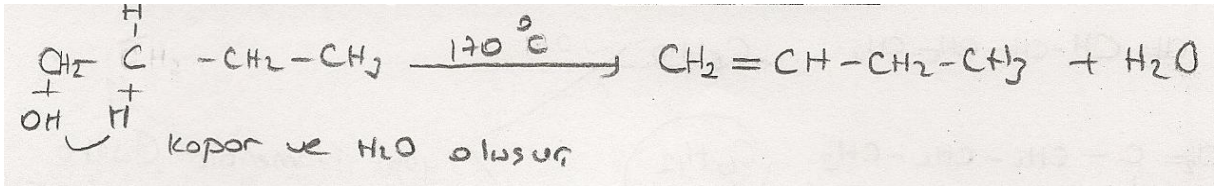 H
CH2 - C - CH2 - CH3 170 °C → CH2 = CH - CH2 - CH3 + H2O
OH H
kopar ve H2O oluşur